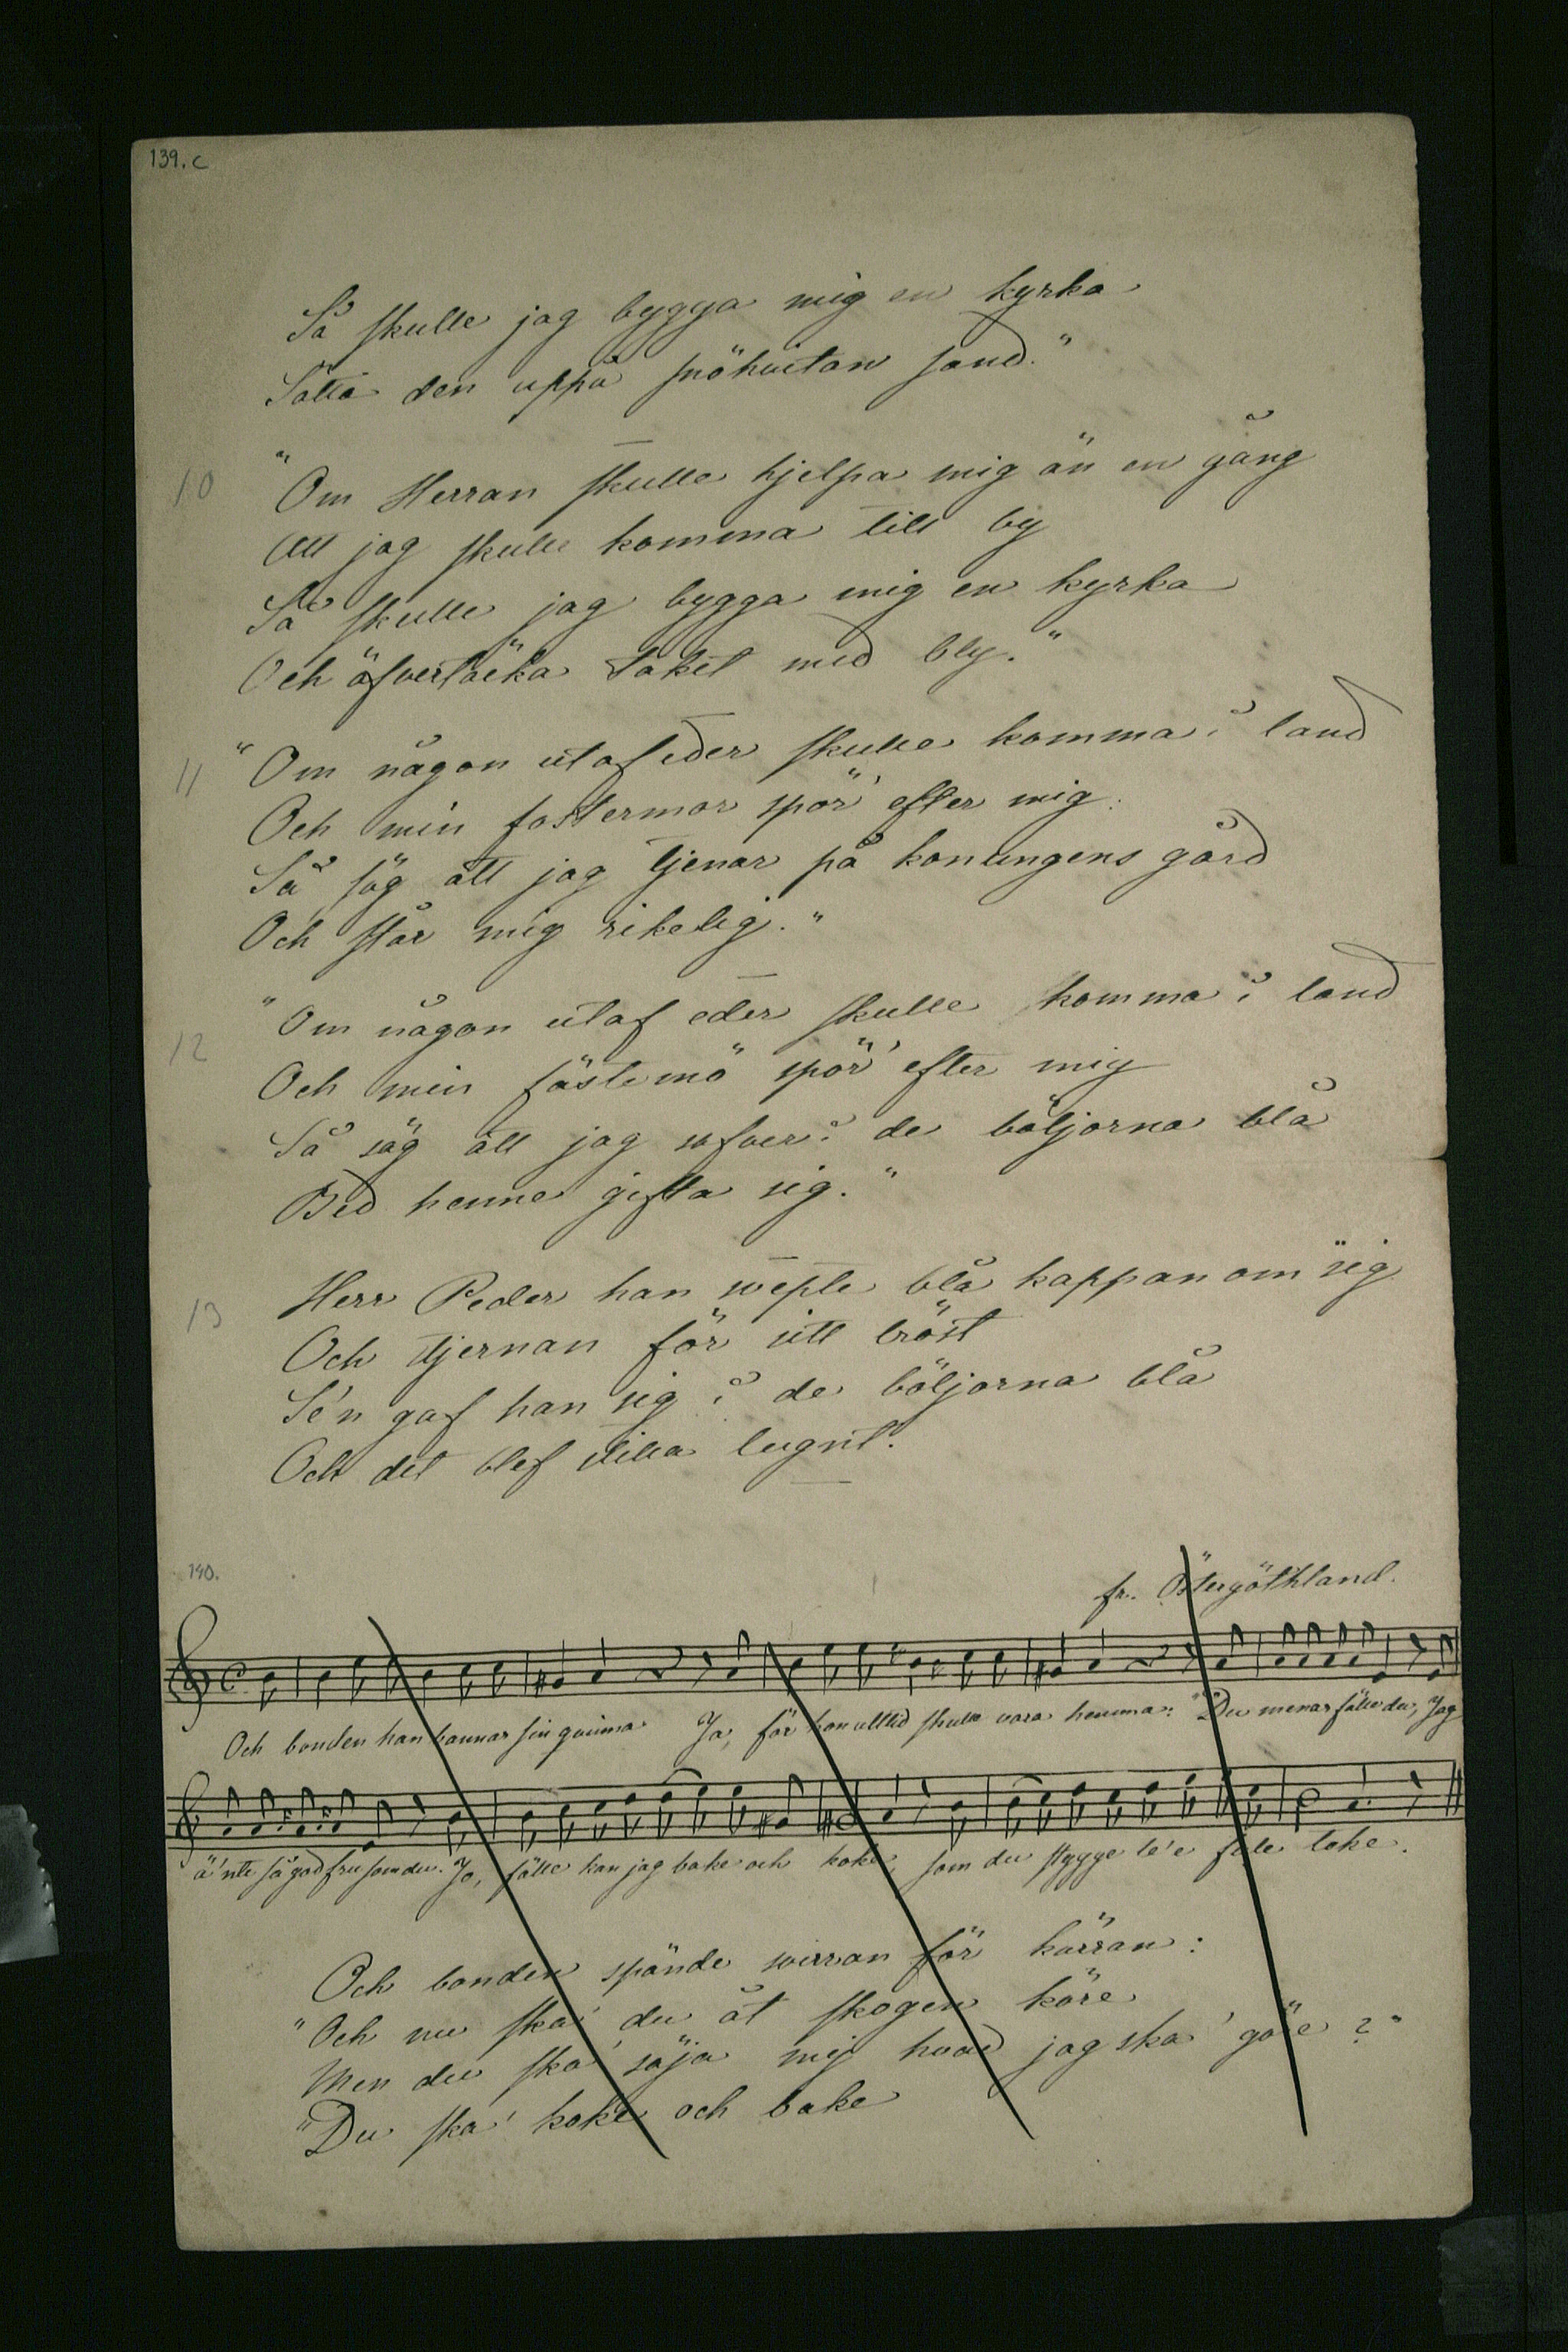 139.c
Så skulle jag bygga mig en kyrka
Sätta den uppå snöhvitan sand."
10 "Om Herran skulle hjelpa mig än en gång
Att jag skulle komma till by
Så skulle jag bygga mig en kyrka
Och öfvertäcka taket med bly."
11 "Om någon utaf eder skulle komma i land
Och min fostermor spör' efter mig:
Så säg att jag tjenar på konungens gård
Och står mig rikelig."
12 "Om någon utaf eder skulle komma i land
Och min fästemö spör' efter mig
Så säg att jag sofver i de böljorna blå
Bed henne gifta sig."
13 Herr Peder han svepte blå kappan om sig
Och stjernan för sitt bröst
Se'n gaf han sig i de böljorna blå
Och det blef stilla lugnt.
140.
fr. Östergöthland.
Och bonden han bannar sin qvinna Ja, för hon alltid skulle vara hemma: "Du menar fälle du, Jag
ä'nte så god fru som du. Jo, fälle kan jag bake och koke, som du stygge le'e fule loke.
Och bonden spände märran för kärran:
"Och nu ska' du åt skogen köre
Men du ska' säja mej hvad jag ska' göre?"
"Du ska' koke och bake